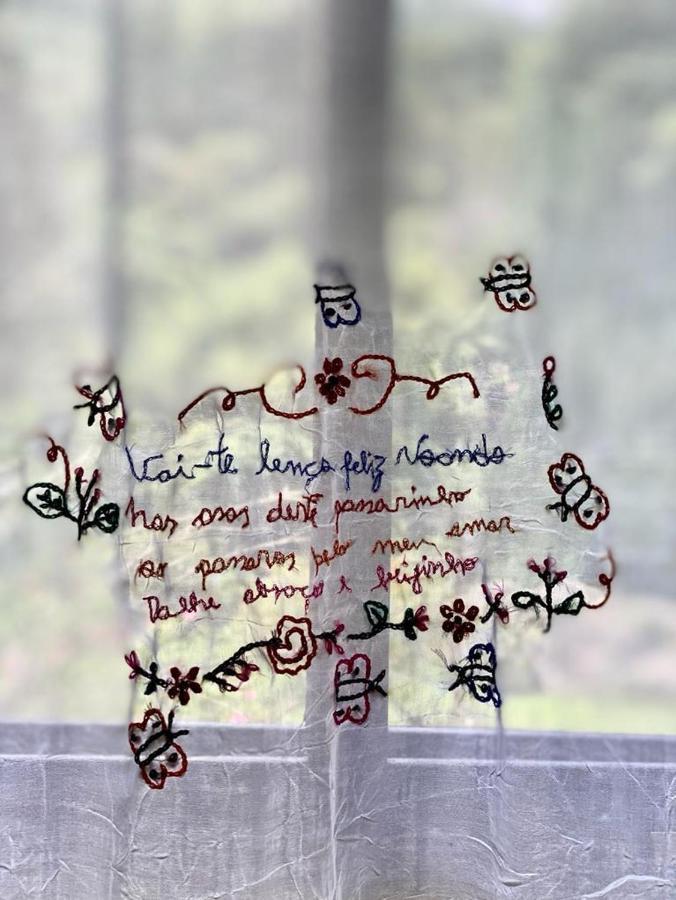 Vai-te lenço feliz Voando
Nas asas deste passarinho
se passares pelo meu amor
Da lhe abraço e beijinho